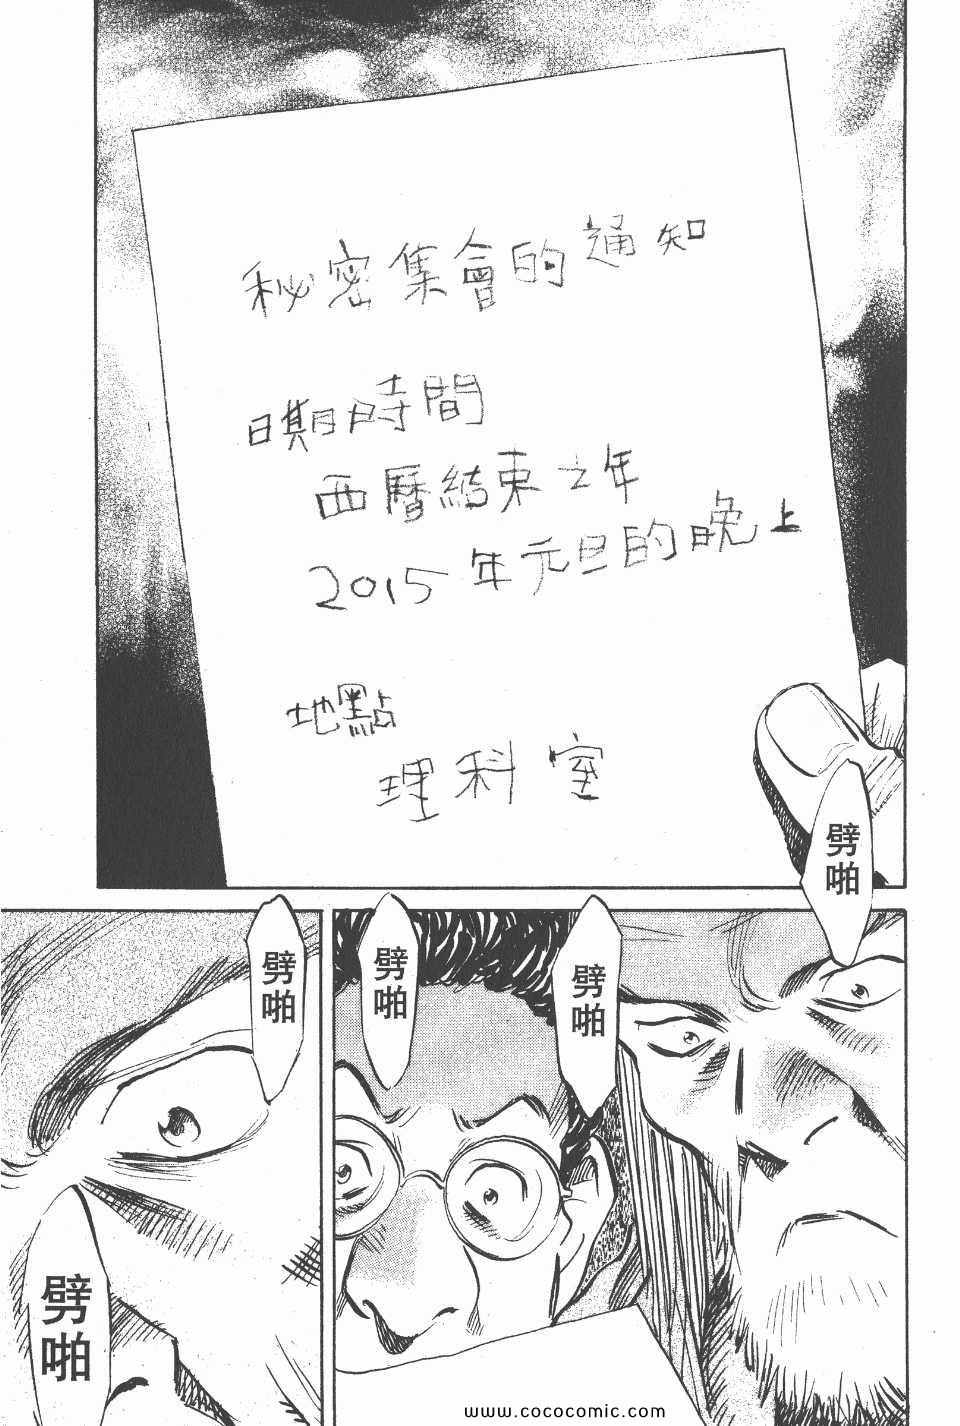 秘密集會的通知
日期時間
西曆結束之年
2015年元旦的晚上
地點
理科室
劈啪
劈啪
劈啪
劈啪
劈啪
www.cococomic.com